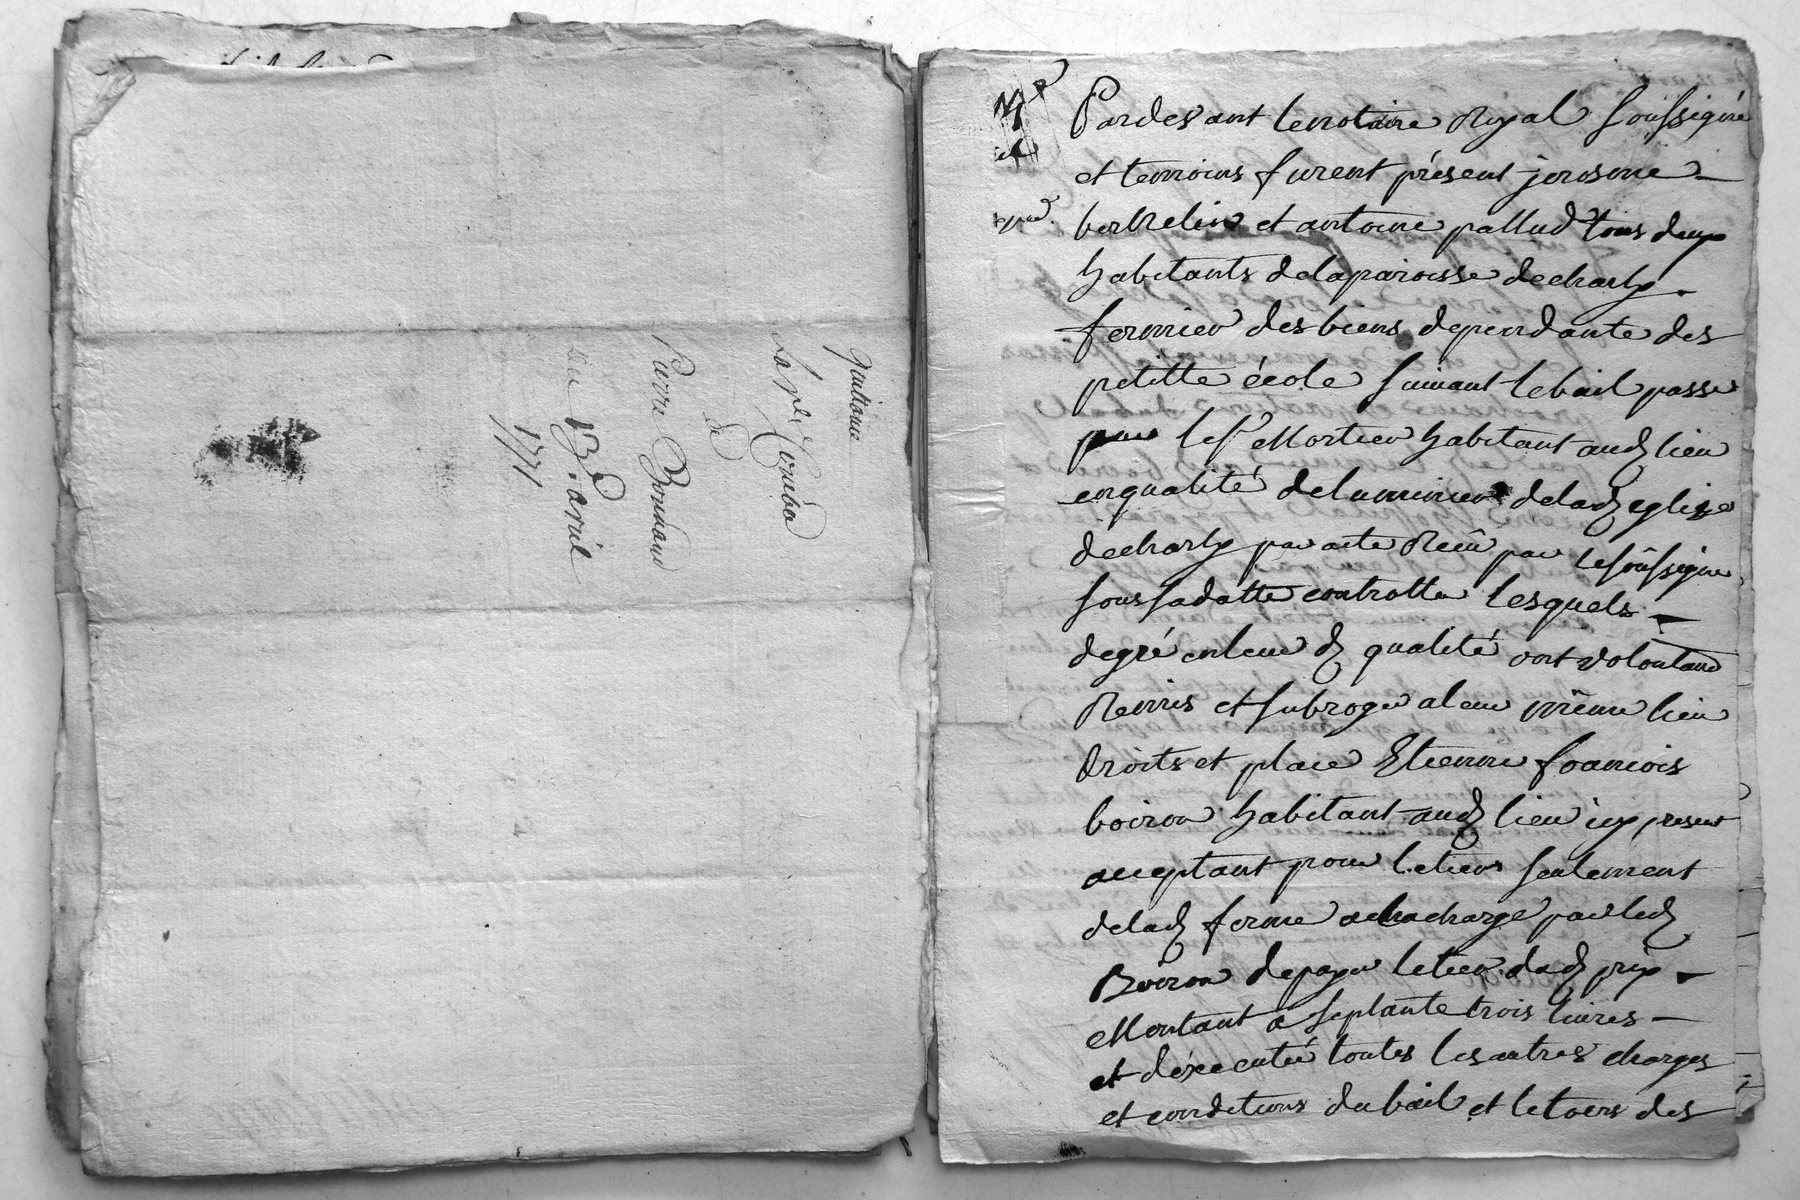 quittance
pierre Bonnand
du 13e. avril
1771
Pardevant lenotaire Royal soussigné
et temoins furent présent jerosme
berthelier et antoine pallud tous deux
habitants delaparoisse decharly
fermier des biens dependante des
petitte école suivant lebail passé
par le sr Mortier habitant aud lieu
enqualité deluminier delad eglise
decharly par acte Reçû par lesoussigné
sous sadatte controllé lesquels
degré enleur d qualité ont volontaire
Remis et subrogé aleur même lieu
droits et place Etienne francois
boiron habitant aud lieu icy present
acceptant pour letiers seulement
delad ferme alacharge parled
Boiron depayer letier dud prix
Montant a septante trois livres
et déxecuté toutes lesautres charges
et conditions dubail et letiers des